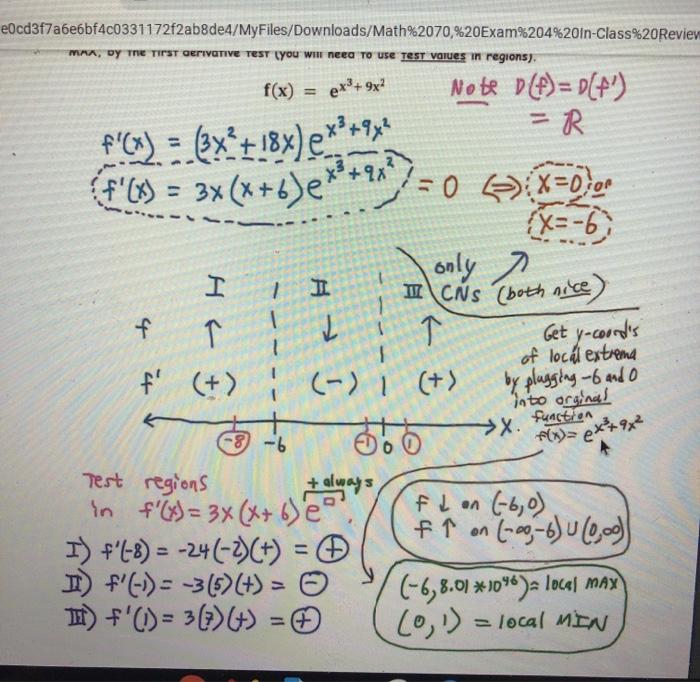 e0cd3f7a6e6bf4c0331172f2ab8de4/MyFiles/Downloads/Math%2070,%20Exam%204%20In-Class%20Review
MAX, by the first derivative test (you will need to use test values in regions).
f(x) = e^{x³+9x²}
Note D(f) = D(f')
= ℝ
f'(x) = (3x²+18x)e^{x³+9x²}
f'(x) = 3x(x+6)e^{x³+9x²} = 0 ⇔ x=0 or
x=-6
only
CNs (both nice)
I II III
f ↑ ↓ ↑
f' (+) (-) (+)
-8 -6 -1 0 1 x.
Get y-coord's
of local extrema
by plugging -6 and 0
into orginal
function
f(x) = e^{x³+9x²}
Test regions
in f'(x) = 3x(x+6)e^□.
+ always
I) f'(-8) = -24(-2)(+) = ⊕
II) f'(-1) = -3(5)(+) = ⊖
III) f'(1) = 3(7)(+) = ⊕
f ↓ on (-6,0)
f ↑ on (-∞,-6)∪(0,∞)
(-6, 8.01*10^46) = local MAX
(0,1) = local MIN